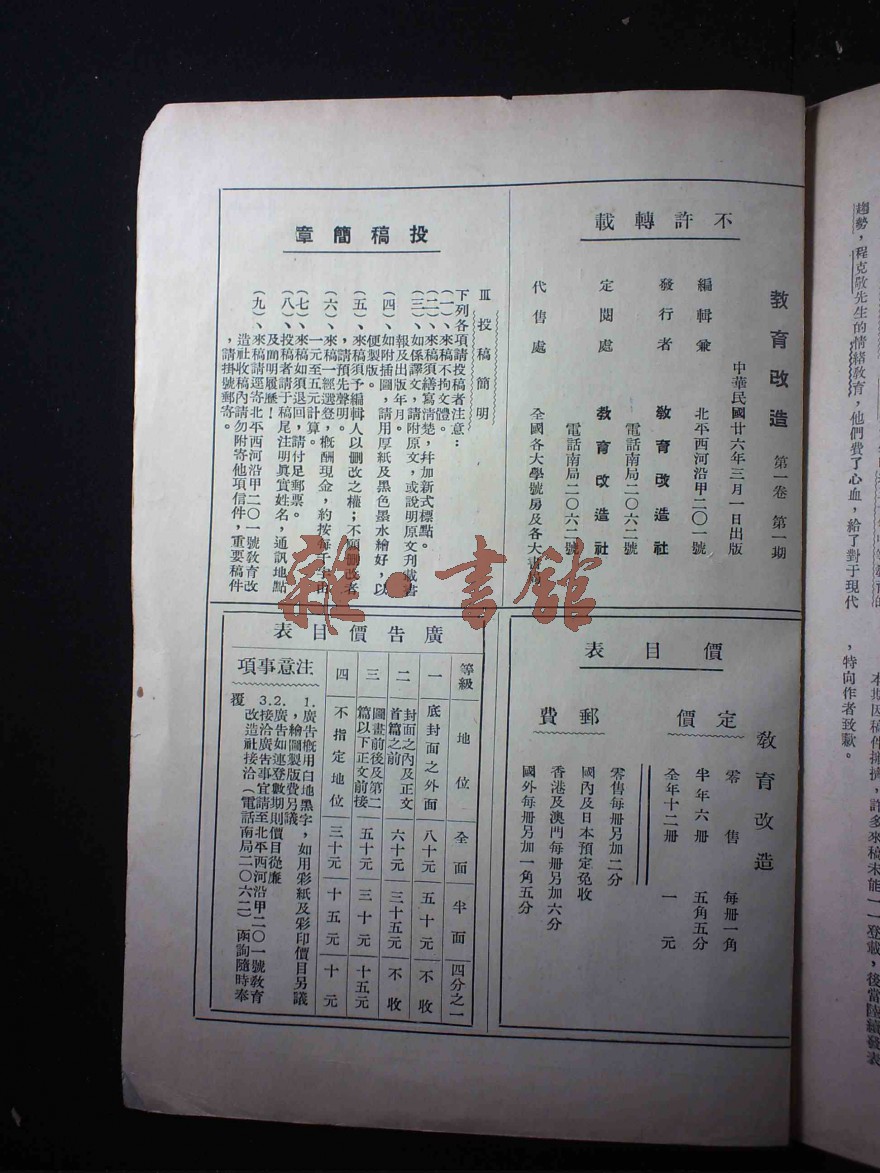 趨勢，程克敬先生的情緒教育，他們費了心血，給了對于現代
，特向作者致歉。
本期因稿件擁擠，許多來稿未能一一登載，後當陸續發表
不許轉載
教育改造 第一卷 第一期
中華民國廿六年三月一日出版
編輯兼 北平西河沿甲二〇一號
發行者 教育改造社
電話南局二〇六二號
定閱處 教育改造社
電話南局二〇六二號
代售處 全國各大學號房及各大書局
投稿簡章
Ⅲ 投稿簡明
下列各項請投稿者注意：
（一）、來稿不拘文體。
（二）、來稿須繕寫清楚，幷加新式標點。
（三）、如係譯文，請附原文，或說明原文刋載書
報及出版年月。
（四）、如附插圖，請用厚紙及黑色墨水繪好，以
便製版。
（五）、來稿須予編輯人以刪改之權；不願刪改者
，請預先聲明。
（六）、來稿一經選登，槪酬現金，約按每千字由
一元至五元計算。
（七）、來稿如須退回，請付足郵票。
（八）、投稿者請于稿尾注明眞實姓名，通訊地點
及簡明履歷！
（九）、來稿請逕寄北平西河沿甲二〇一號敎育改
造社收稿內請勿附寄他項信件，重要稿件
，請掛號郵寄。
教育改造
價目表
定價
零售 每册一角
半年六册 五角五分
全年十二册 一元
郵費
零售每册另加二分
國內及日本預定免收
香港及澳門每册另加六分
國外每册另加一角五分
廣告價目表
等級 地位 全面 半面 四分之一
一 底封面之外面 八十元 五十元 不收
二 封面之內及正文首篇之前 六十元 三十五元 不收
三 圖畫前後及第二篇以下正文前接 五十元 三十元 十五元
四 不指定地位 三十元 十五元 十元
注意事項
1.廣告槪用白地黑字，如用彩紙及彩印價目另議
，繪圖製版費另議
2.廣告如連登數期則價目從廉
3.接洽廣告事宜請至北平西河沿甲二〇一號敎育
改造社接洽（電話南局二〇六二）函詢隨時奉
覆
雜·書館